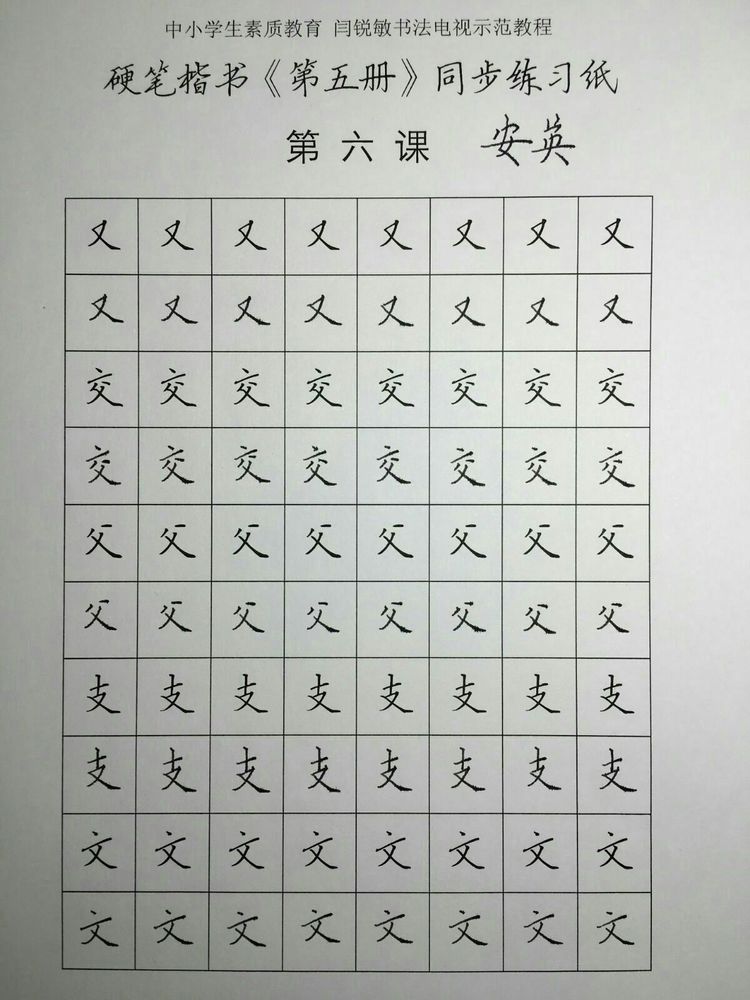 中小学生素质教育 闫锐敏书法电视示范教程
硬笔楷书《第五册》同步练习纸
第六课 安英
又 又 又 又 又 又 又 又
又 又 又 又 又 又 又 又
交 交 交 交 交 交 交 交
交 交 交 交 交 交 交 交
父 父 父 父 父 父 父 父
父 父 父 父 父 父 父 父
支 支 支 支 支 支 支 支
支 支 支 支 支 支 支 支
文 文 文 文 文 文 文 文
文 文 文 文 文 文 文 文